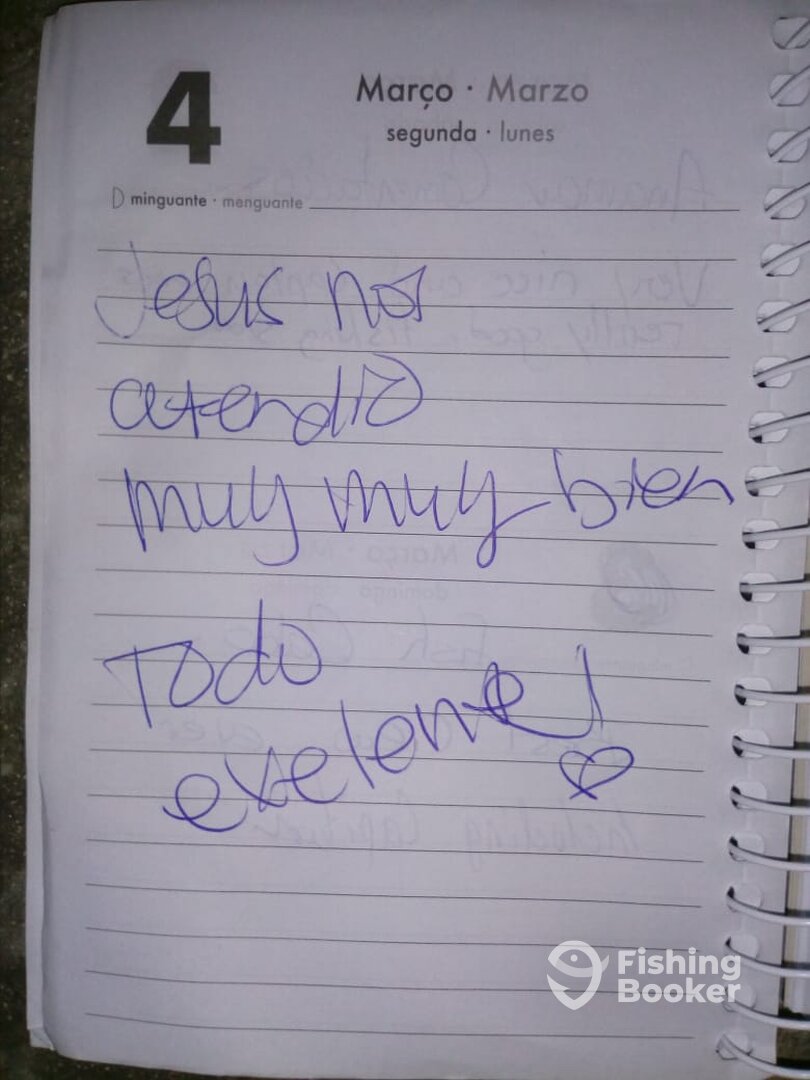 4
Março · Marzo
segunda · lunes
minguante · menguante
Jesus nos
atendio
muy muy bien
Todo
exelente!
Fishing
Booker